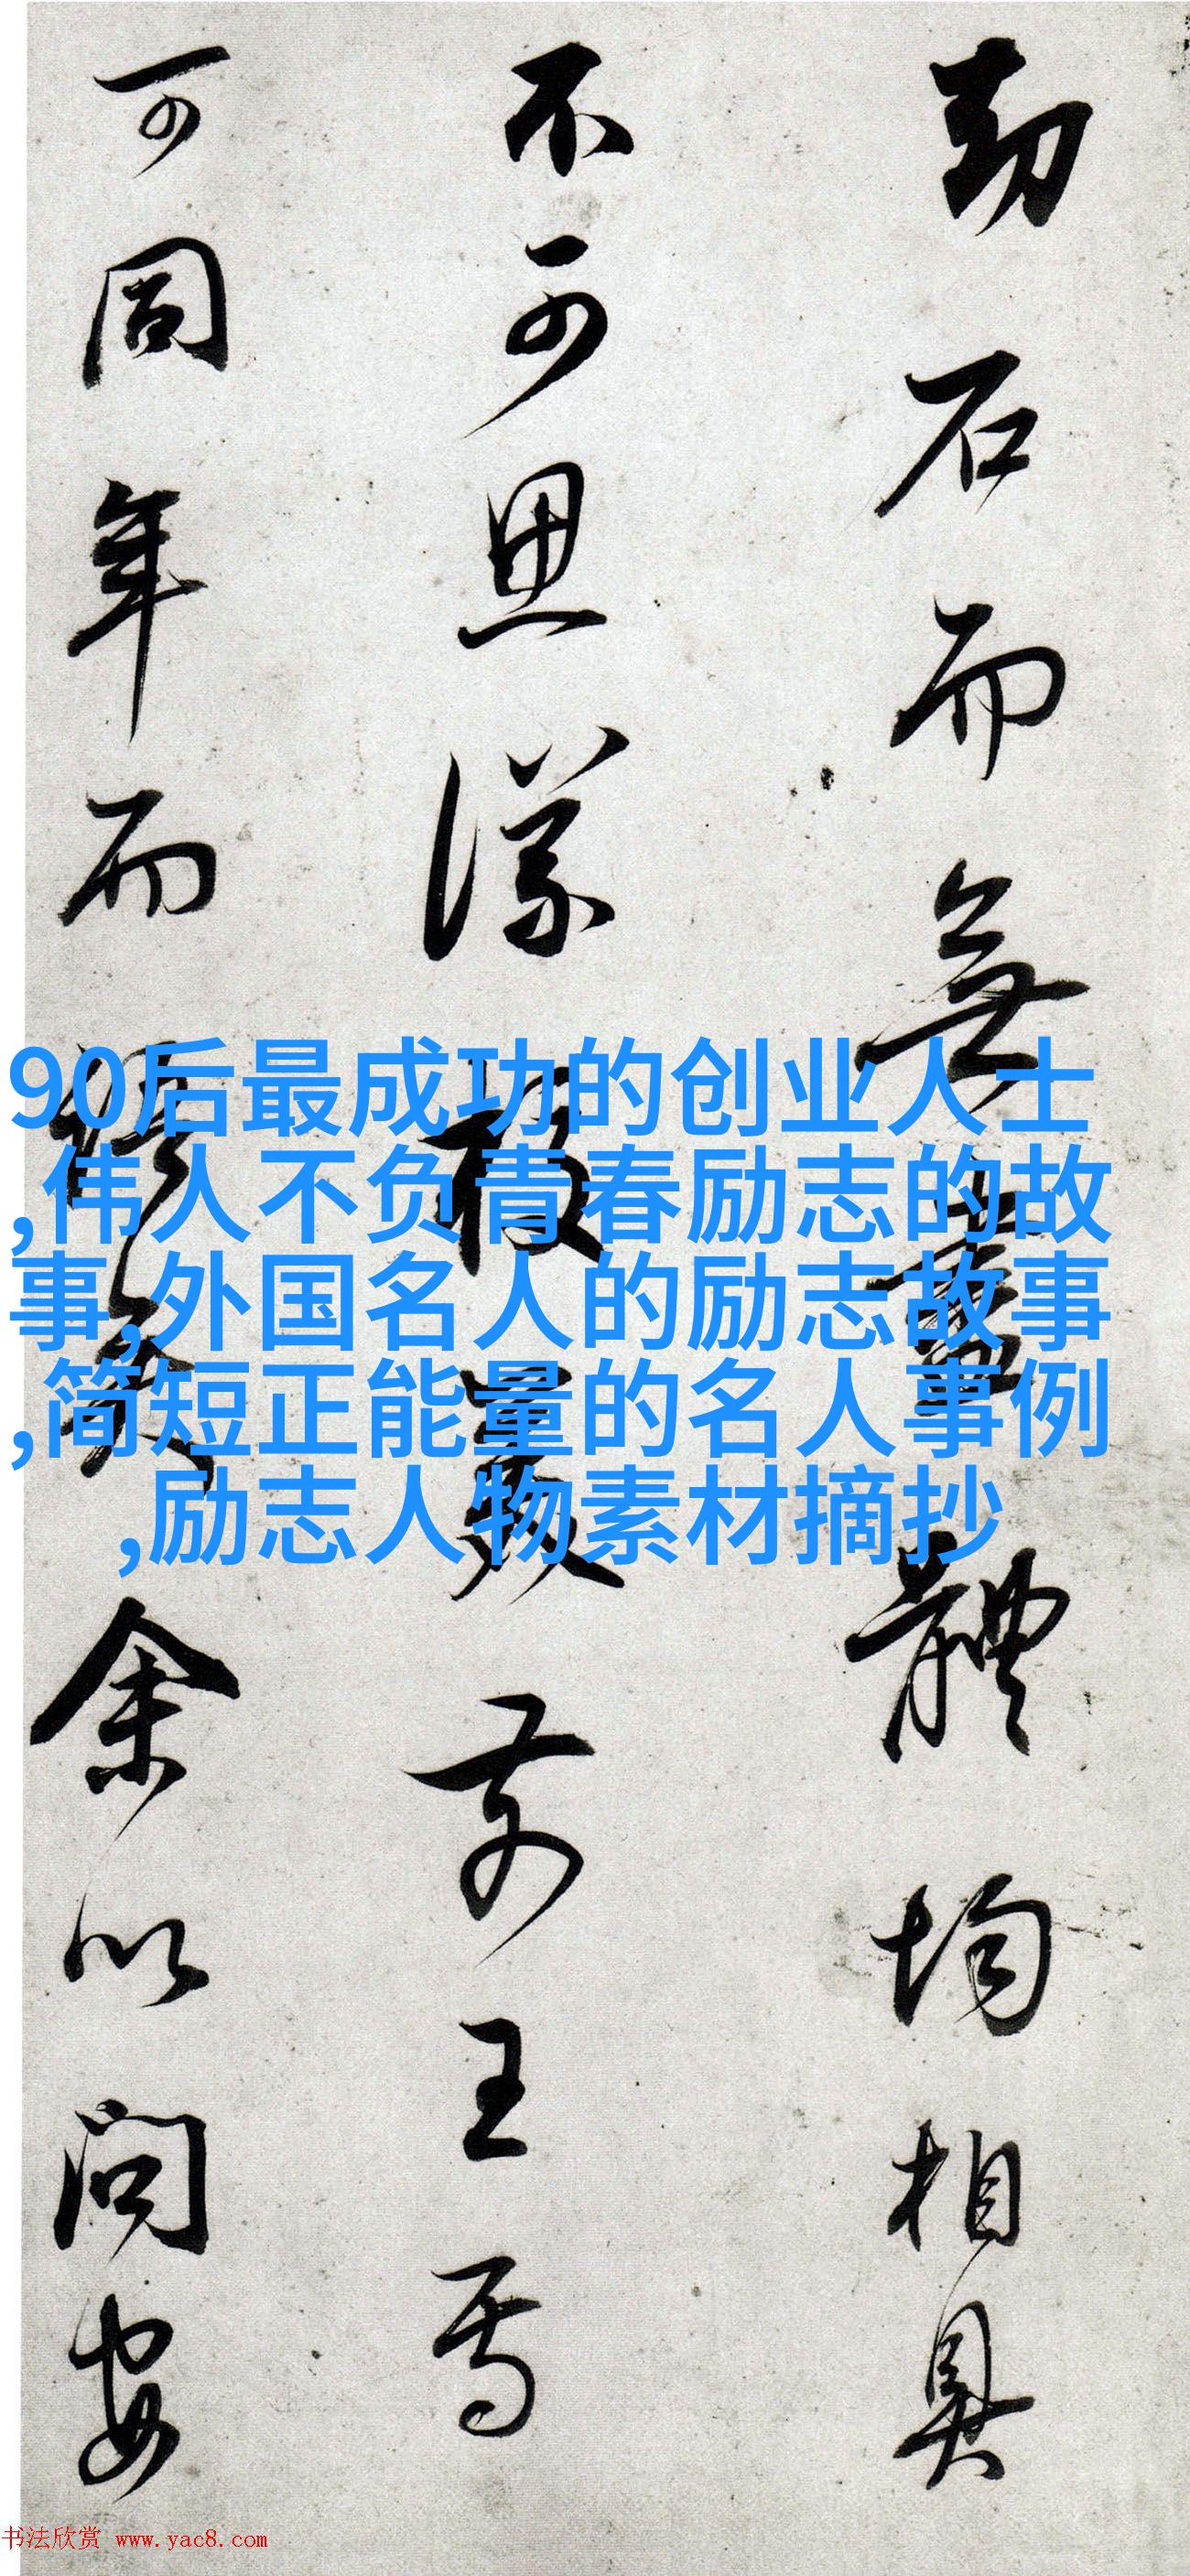 劫石而無盡體均相具
不可思議前王焉
可同年而語矣余以問安
90后最成功的创业人士
,伟人不负青春励志的故
事,外国名人的励志故事
,简短正能量的名人事例
,励志人物素材摘抄
书法欣赏 www.yac8.com